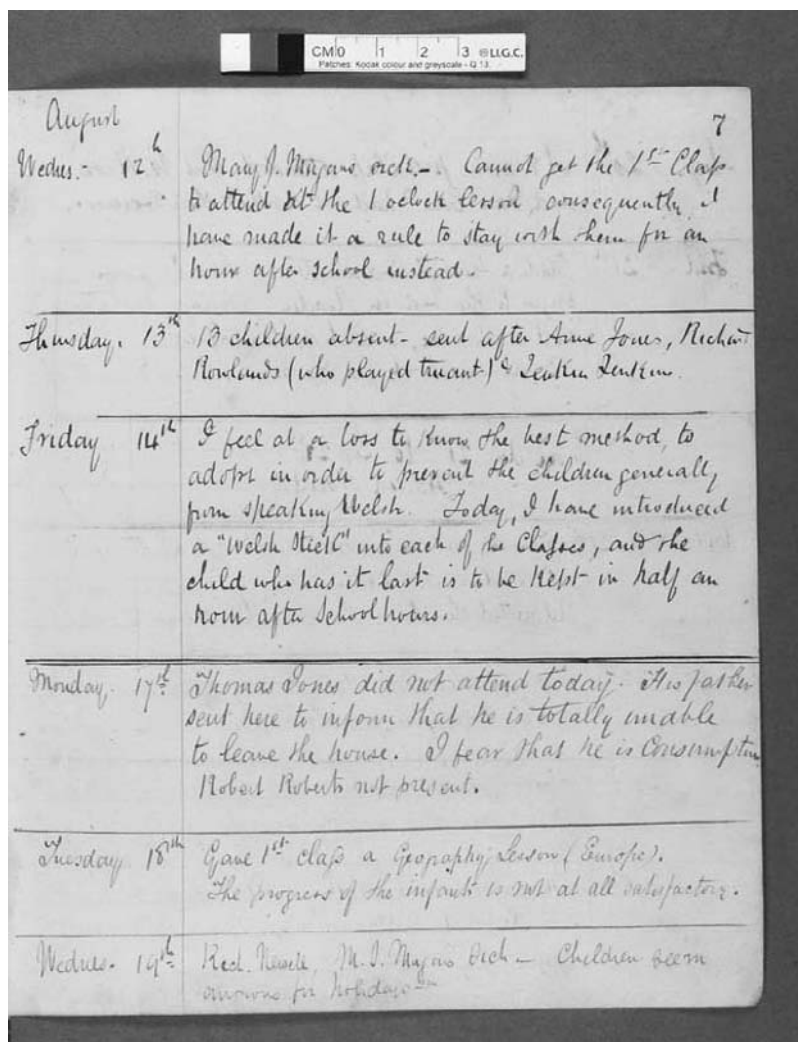 CM 0 1 2 3 ©LL.G.C.
Patches: Kodak colour and greyscale - Q 13.
August
7
Wednes.- 12th Mary J. Mugans sick.-. Cannot get the 1st Class
to attend at the 1 oclock lesson, consequently, I
have made it a rule to stay with them for an
hour after school instead.
Thursday. 13th 13 children absent - sent after Anne Jones, Richard
Rowlands (who played truant) & Jenkin Jenkins.
Friday 14th I feel at a loss to know the best method, to
adopt in order to prevent the children generally
from speaking Welsh. Today, I have introduced
a "Welsh Stick" into each of the Classes, and the
child who has it last is to be kept in half an
hour after school hours.
Monday. 17th Thomas Jones did not attend today. His father
sent here to inform that he is totally unable
to leave the house. I fear that he is Consumptive.
Robert Roberts not present.
Tuesday 18th Gave 1st class a Geography Lesson (Europe).
The progress of the infants is not at all satisfactory.
Wednes. 19th M. J. Mugans sick - Children seem
anxious for holidays